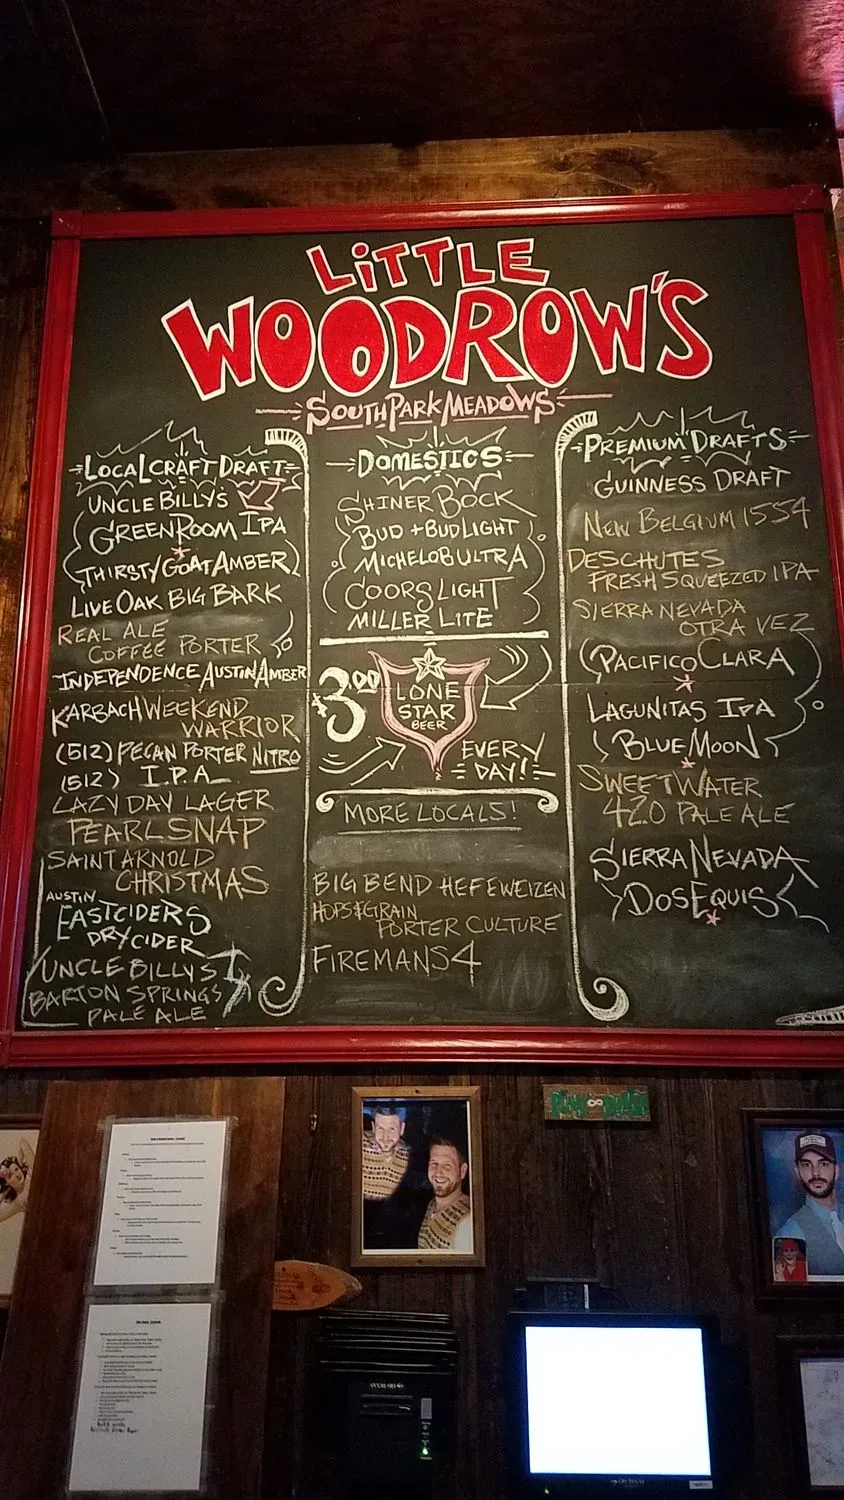 LiTTLE
WOODROW'S
SOUTH PARK MEADOWS
LOCAL CRAFT DRAFT
UNCLE BILLY'S
GREEN ROOM IPA
THIRSTY GOAT AMBER
LIVE OAK BIG BARK
REAL ALE
COFFEE PORTER
INDEPENDENCE AUSTIN AMBER
KARBACH WEEKEND
WARRIOR
(512) PECAN PORTER NITRO
(512) I.P.A
LAZY DAY LAGER
PEARL SNAP
SAINT ARNOLD
CHRISTMAS
AUSTIN
EASTCIDERS
DRY CIDER
UNCLE BILLYS
BARTON SPRINGS
PALE ALE
DOMESTICS
SHINER BOCK
BUD + BUD LIGHT
MICHELOB ULTRA
COORS LIGHT
MILLER LITE
$3.00
LONE
STAR
BEER
EVERY
DAY!
MORE LOCALS!
BIG BEND HEFEWEIZEN
HOPS & GRAIN
PORTER CULTURE
FIREMANS 4
PREMIUM DRAFTS
GUINNESS DRAFT
NEW BELGIUM 1554
DESCHUTES
FRESH SQUEEZED IPA
SIERRA NEVADA
OTRA VEZ
PACIFICO CLARA
LAGUNITAS IPA
BLUE MOON
SWEETWATER
420 PALE ALE
SIERRA NEVADA
DOS EQUIS